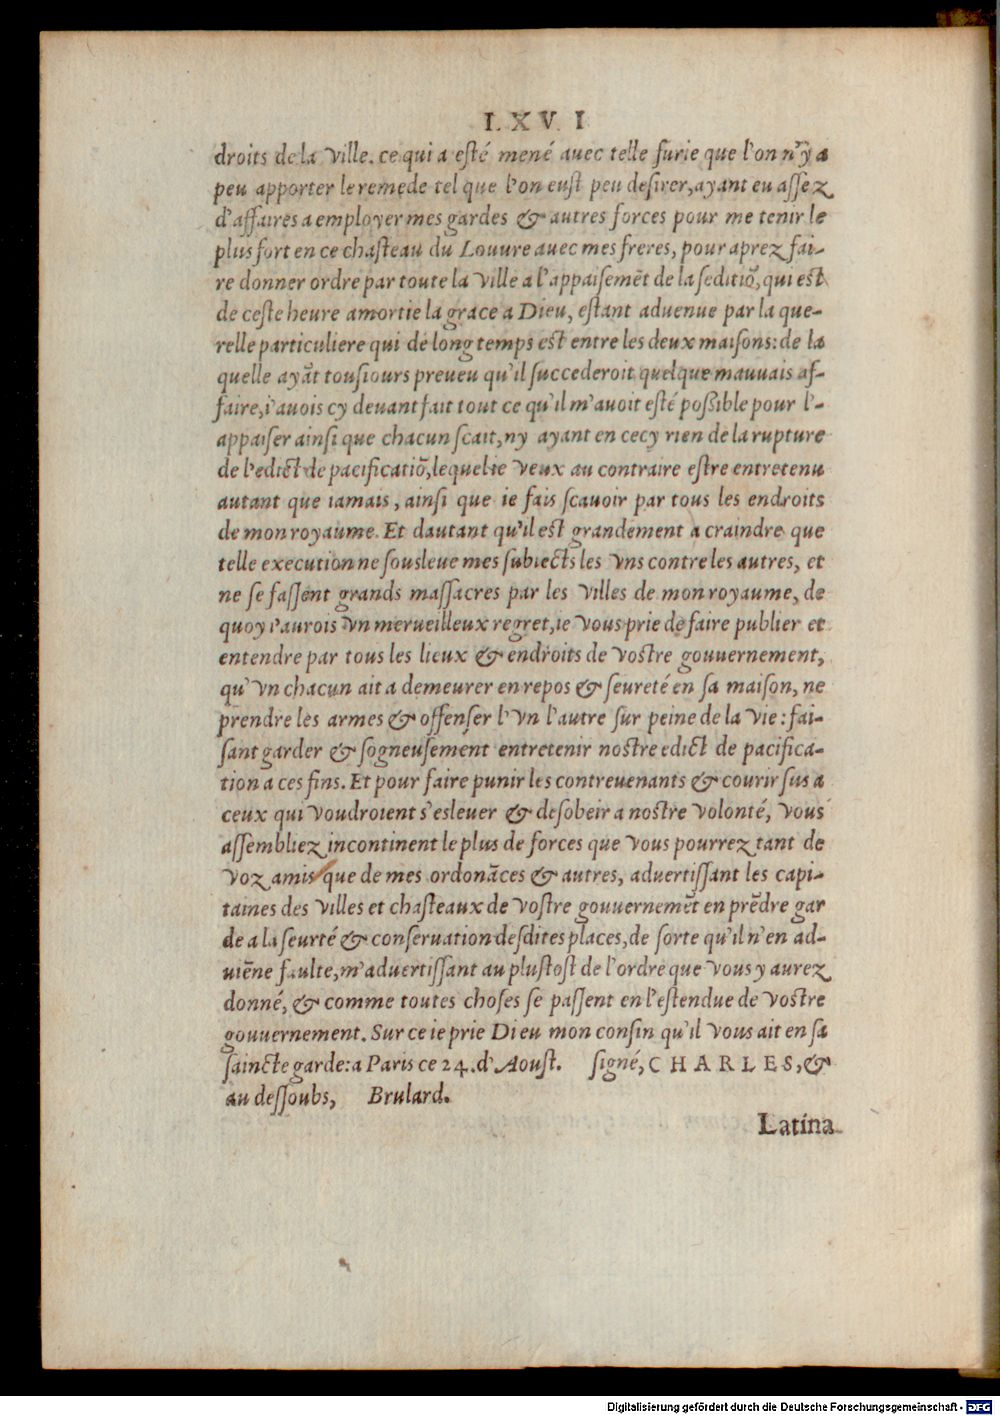 LXVI
droits de la ville. ce qui a esté mené auec telle furie que l'on n'y a
peu apporter le remede tel que l'on eust peu desirer, ayant eu assez
d'affaires a employer mes gardes & autres forces pour me tenir le
plus fort en ce chasteau du Louure auec mes freres, pour aprez fai-
re donner ordre par toute la ville a l'appaisemēt de la seditiō, qui est
de ceste heure amortie la grace a Dieu, estant aduenue par la que-
relle particuliere qui de long temps est entre les deux maisons: de la
quelle ayāt tousiours preueu qu'il succederoit quelque mauuais af-
faire, i'auois cy deuant fait tout ce qu'il m'auoit esté poßible pour l'-
appaiser ainsi que chacun scait, ny ayant en cecy rien de la rupture
de l'edict de pacificatiō, lequel ie veux au contraire estre entretenu
autant que iamais, ainsi que ie fais scauoir par tous les endroits
de mon royaume. Et dautant qu'il est grandement a craindre que
telle execution ne sousleue mes subiects les vns contre les autres, et
ne se fassent grands massacres par les villes de mon royaume, de
quoy i'aurois vn merueilleux regret, ie vous prie de faire publier et
entendre par tous les lieux & endroits de vostre gouuernement,
qu'vn chacun ait a demeurer en repos & seureté en sa maison, ne
prendre les armes & offenser l'vn l'autre sur peine de la vie: fai-
sant garder & sogneusement entretenir nostre edict de pacifica-
tion a ces fins. Et pour faire punir les contreuenants & courir sus a
ceux qui voudroient s'esleuer & desobeir a nostre volonté, vous
assembliez incontinent le plus de forces que vous pourrez tant de
voz amis que de mes ordonāces & autres, aduertissant les capi-
taines des villes et chasteaux de vostre gouuernemēt en prēdre gar
de a la seurté & conseruation desdites places, de sorte qu'il n'en ad-
uiēne faulte, m'aduertissant au plustost de l'ordre que vous y aurez
donné, & comme toutes choses se passent en l'estendue de vostre
gouuernement. Sur ce ie prie Dieu mon consin qu'il vous ait en sa
saincte garde: a Paris ce 24. d'Aoust. signé, CHARLES, &
au dessoubs, Brulard.
Latina
Digitalisierung gefördert durch die Deutsche Forschungsgemeinschaft - DFG